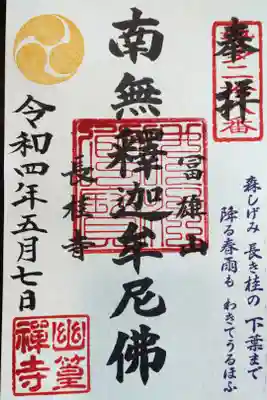 奉拝
森しげみ 長き桂の 下葉まで
降る春雨も わきてうるほふ
富雄山
南無釋迦牟尼佛
長桂寺
令和四年五月七日
幽篁禅寺